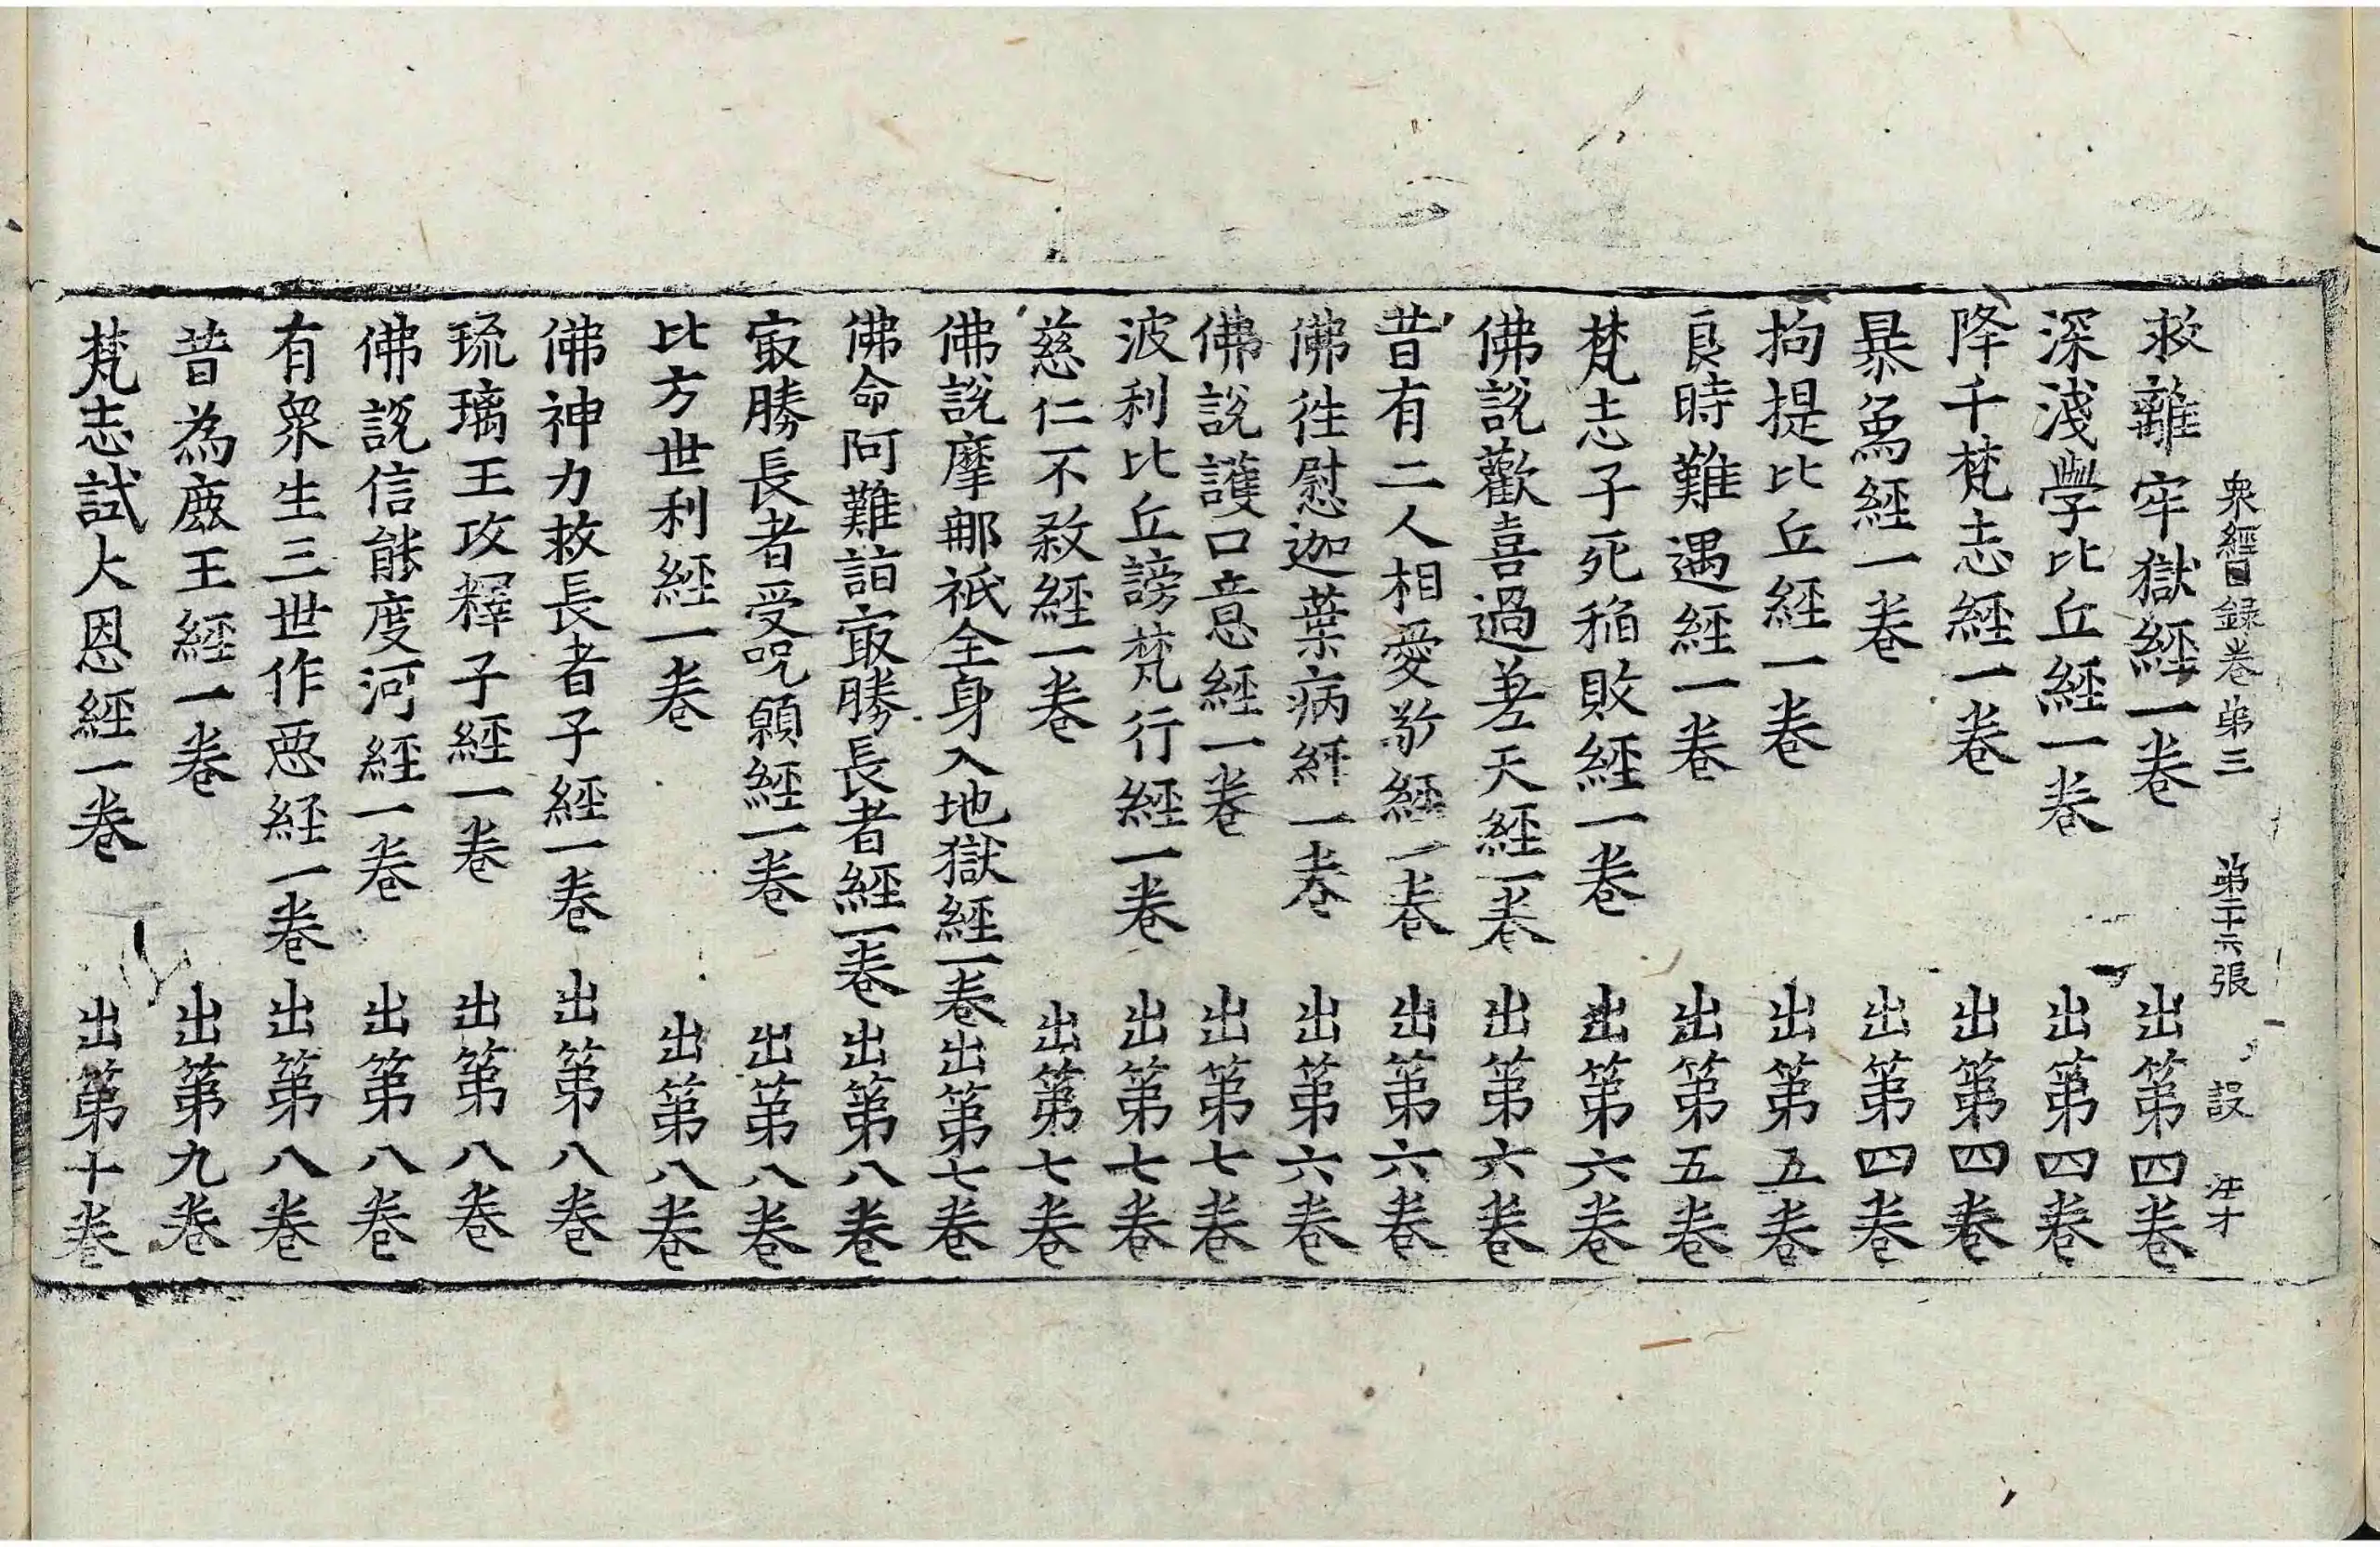 衆經目録卷苐三 苐二十六張 設
救離牢獄經一卷 出第四卷
深淺學比丘經一卷 出第四卷
降千梵志經一卷 出第四卷
暴象經一卷 出第四卷
拘提比丘經一卷 出第五卷
良時難遇經一卷 出第五卷
梵志子死稻敗經一卷 出第六卷
佛說歡喜過差天經一卷 出第六卷
昔有二人相愛敬經一卷 出第六卷
佛徃慰迦葉病經一卷 出第六卷
佛說護口意經一卷 出第七卷
波利比丘謗梵行經一卷 出第七卷
慈仁不殺經一卷 出第七卷
佛說摩那祇全身入地獄經一卷 出第七卷
佛命阿難詣㝡勝長者經一卷 出第八卷
㝡勝長者受呪願經一卷 出第八卷
比方世利經一卷 出第八卷
佛神力救長者子經一卷 出第八卷
琉璃王攻釋子經一卷 出第八卷
佛說信能度河經一卷 出第八卷
有衆生三世作惡經一卷 出第八卷
昔為鹿王經一卷 出第九卷
梵志試大恩經一卷 出第十卷